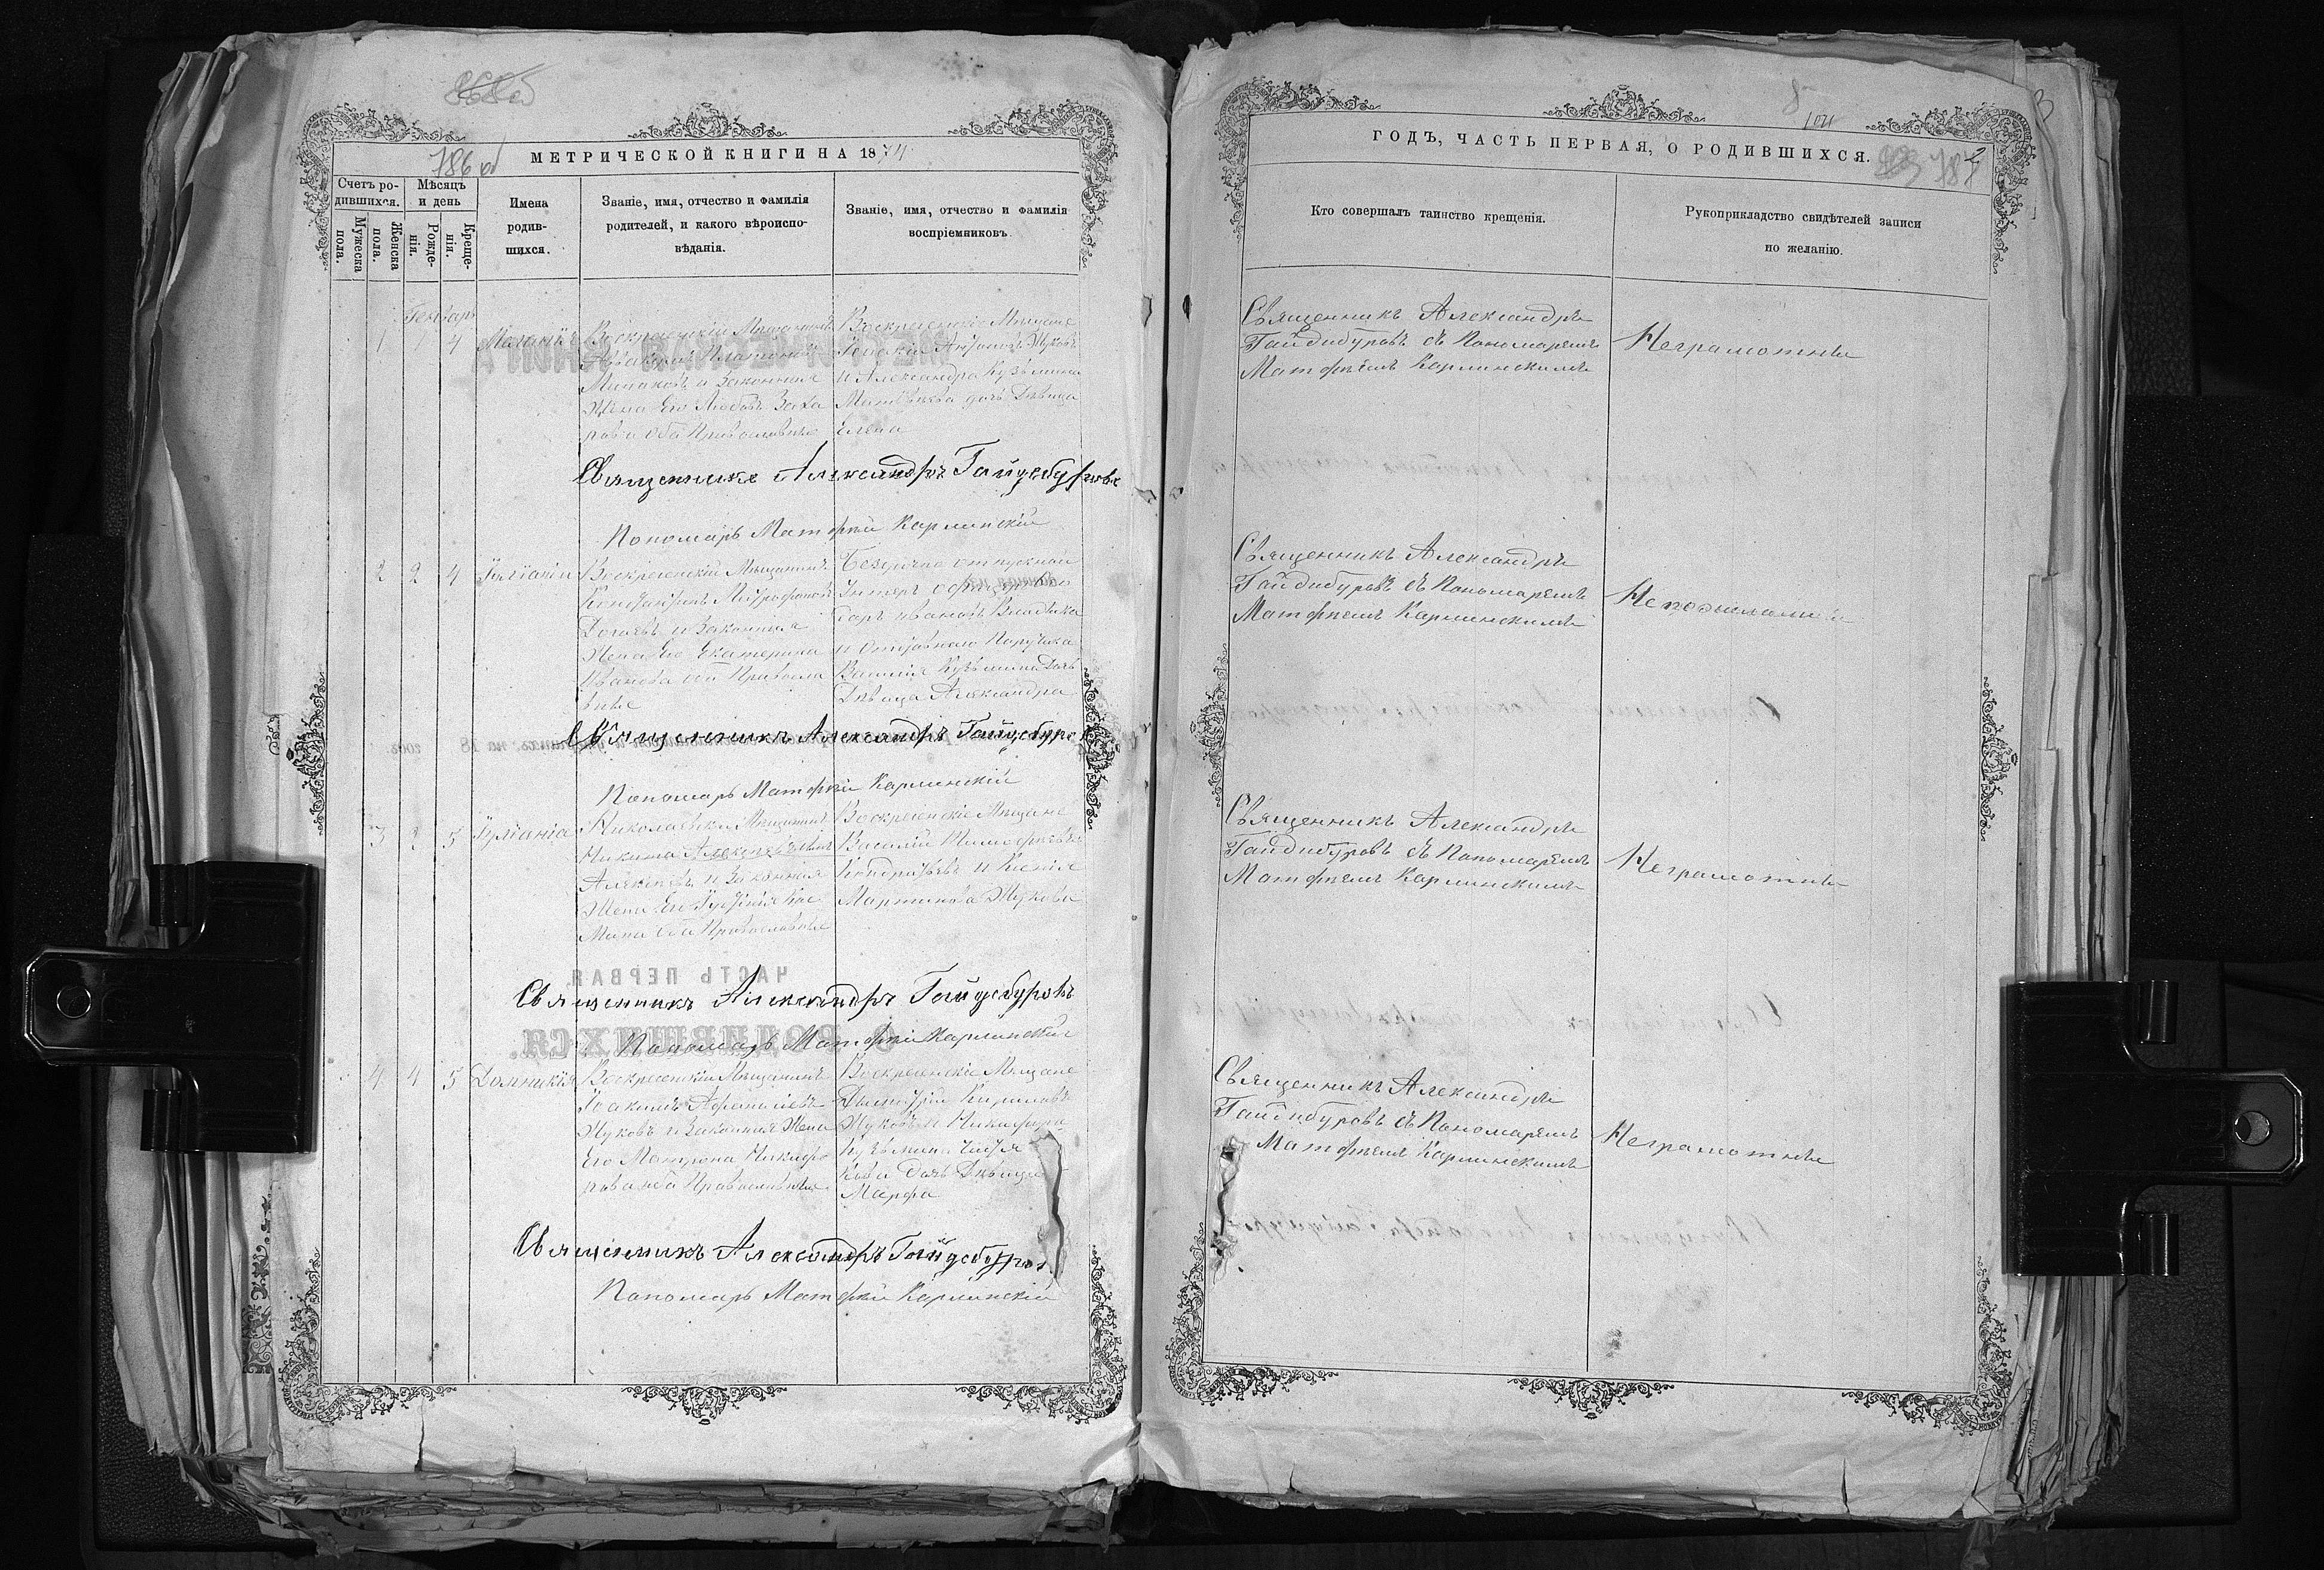 786 об
МЕТРИЧЕСКОЙ КНИГИ НА 1874
Счетъ ро-
дившихся.
Мѣсяцъ
и день
Мужеска
пола.
Женска
пола.
Рожде-
нія.
Креще-
нія.
Имена
родив-
шихся.
Званіе, имя, отчество и фамилія
родителей, и какого вѣроиспо-
вѣданія.
Званіе, имя, отчество и фамилія
воспріемниковъ.
Генварь
1 1 4
Меланія
Воскресенскій Мѣщанинъ
Платоновъ
Минаковъ и Законная
Жена Его Любовь Заха
рова оба Православные
Воскресенскіе Мѣщане
Жуковъ
и Александра Кузьмина
Матвѣева дочь Дѣвица
Елена
Священникъ Александръ Гайдебуровъ
Пономарь Матфѣй Карминскій
2 2 4
Іуліанія
Воскресенскій Мѣщанинъ
Константинъ Митрофановъ
и Законная
Жена Его Екатерина
Иванова оба Правосла
вные
Безсрочно отпускной
Унтеръ Офицеръ
Ивановъ
и Отставнаго Поручика
Василія Кузьмина Дочь
Дѣвица Александра
Священникъ Александръ Гайдебуровъ
Пономарь Матфѣй Карминскій
3 2 5
Іуліанія
Николаевскій Мѣщанинъ
Никита Алексѣевъ
Алексѣевъ и Законная
Жена Его
Православные
Воскресенскіе Мѣщане
Василій Тимофѣевъ
Кондратьевъ и Ксенія
Мартинова Жукова
Священникъ Александръ Гайдебуровъ
Пономарь Матфѣй Карминскій
4 4 5
Домникія
Воскресенскій Мѣщанинъ
Іоакимъ Афанасіевъ
Жуковъ и Законная Жена
Его Матрона Никифо
рова оба Православные
Воскресенскіе Мѣщане
Димитрій Кириловъ
Жуковъ и Никифора
Кузьмина
Дочь Дѣвица
Марфа
Священникъ Александръ Гайдебуровъ
Пономарь Матфѣй Карминскій
ГОДЪ, ЧАСТЬ ПЕРВАЯ, О РОДИВШИХСЯ.
787
Кто совершалъ таинство крещенія.
Рукоприкладство свидѣтелей записи
по желанію.
Священникъ Александръ
Гайдибуровъ съ Пономаремъ
Матфѣемъ Карминскимъ
Неграмотны
Священникъ Александръ
Гайдибуровъ съ Пономаремъ
Матфѣемъ Карминскимъ
Непожелали
Священникъ Александръ
Гайдибуровъ съ Пономаремъ
Матфѣемъ Карминскимъ
Неграмотны
Священникъ Александръ
Гайдибуровъ съ Пономаремъ
Матфѣемъ Карминскимъ
Неграмотны